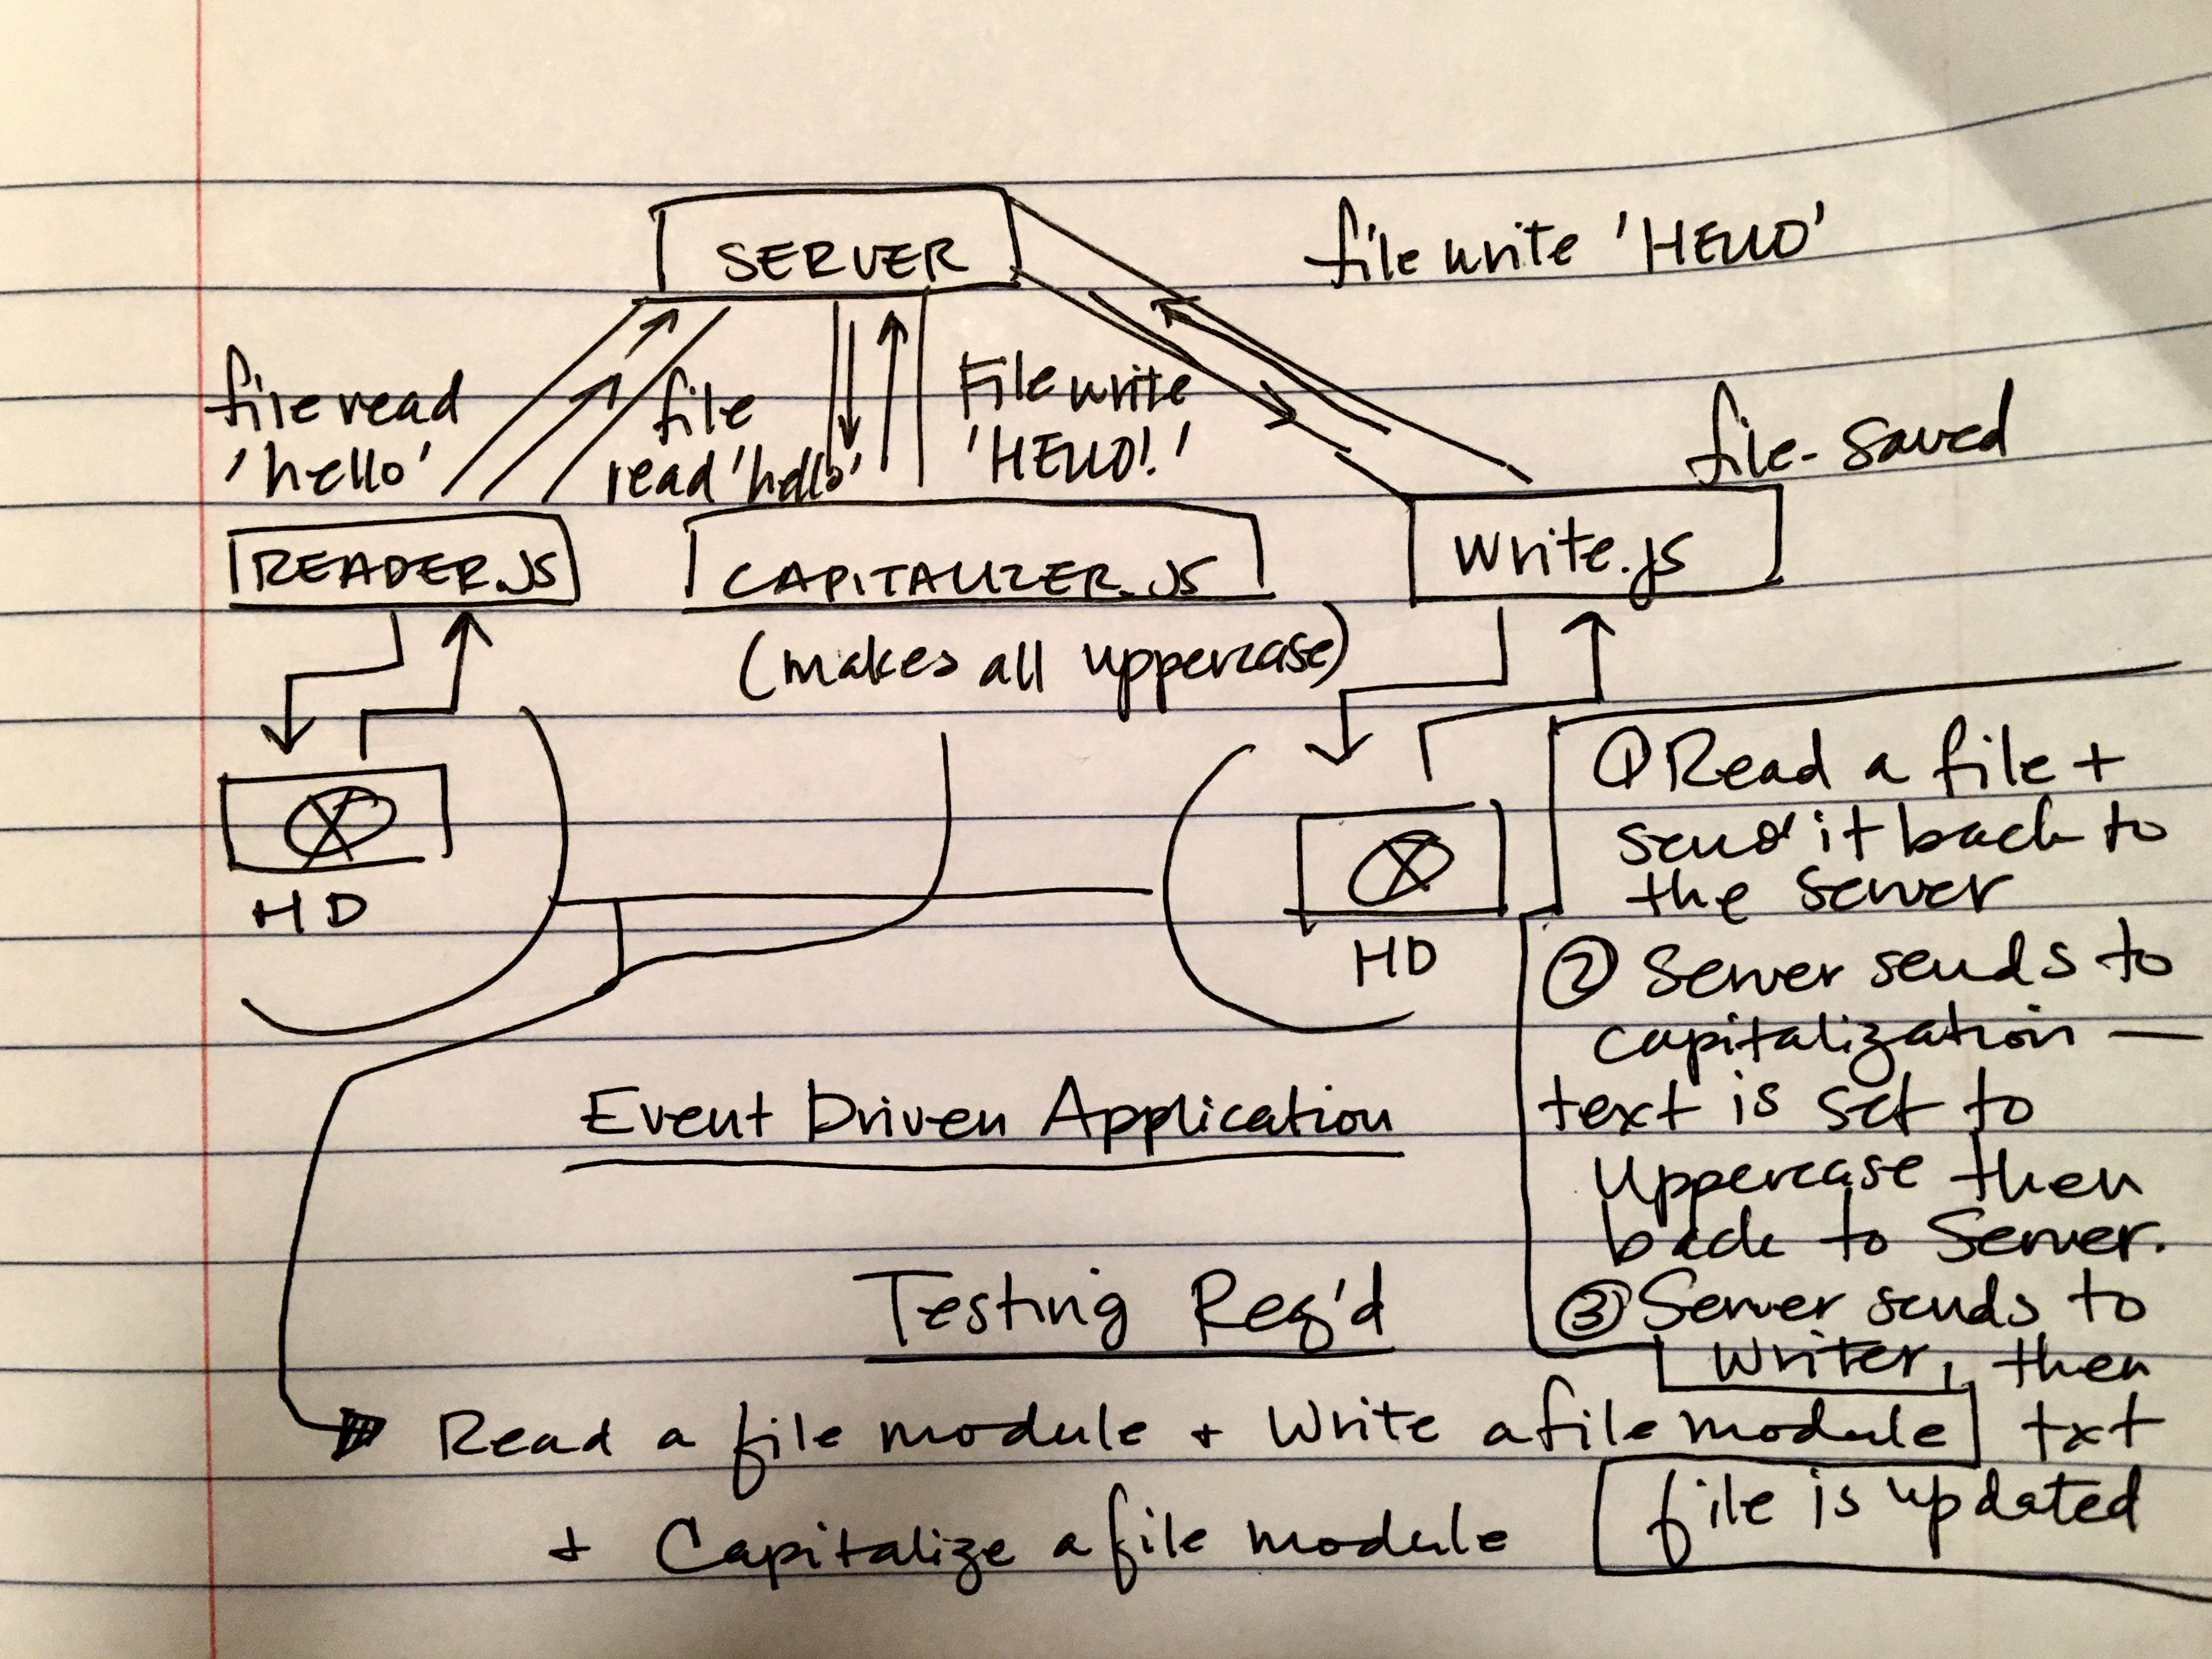 SERVER
file write 'HELLO'
file read
'hello'
file
read 'hello'
File write
'HELLO!'
file-saved
READER.JS
CAPITALIZER.JS
write.js
(makes all uppercase)
HD
HD
① Read a file +
send it back to
the server
② Server sends to
capitalization —
text is set to
Uppercase then
back to Server.
③ Server sends to
writer, then
txt
file is updated
Event Driven Application
Testing Req'd
Read a file module + Write a file module
+ Capitalize a file module